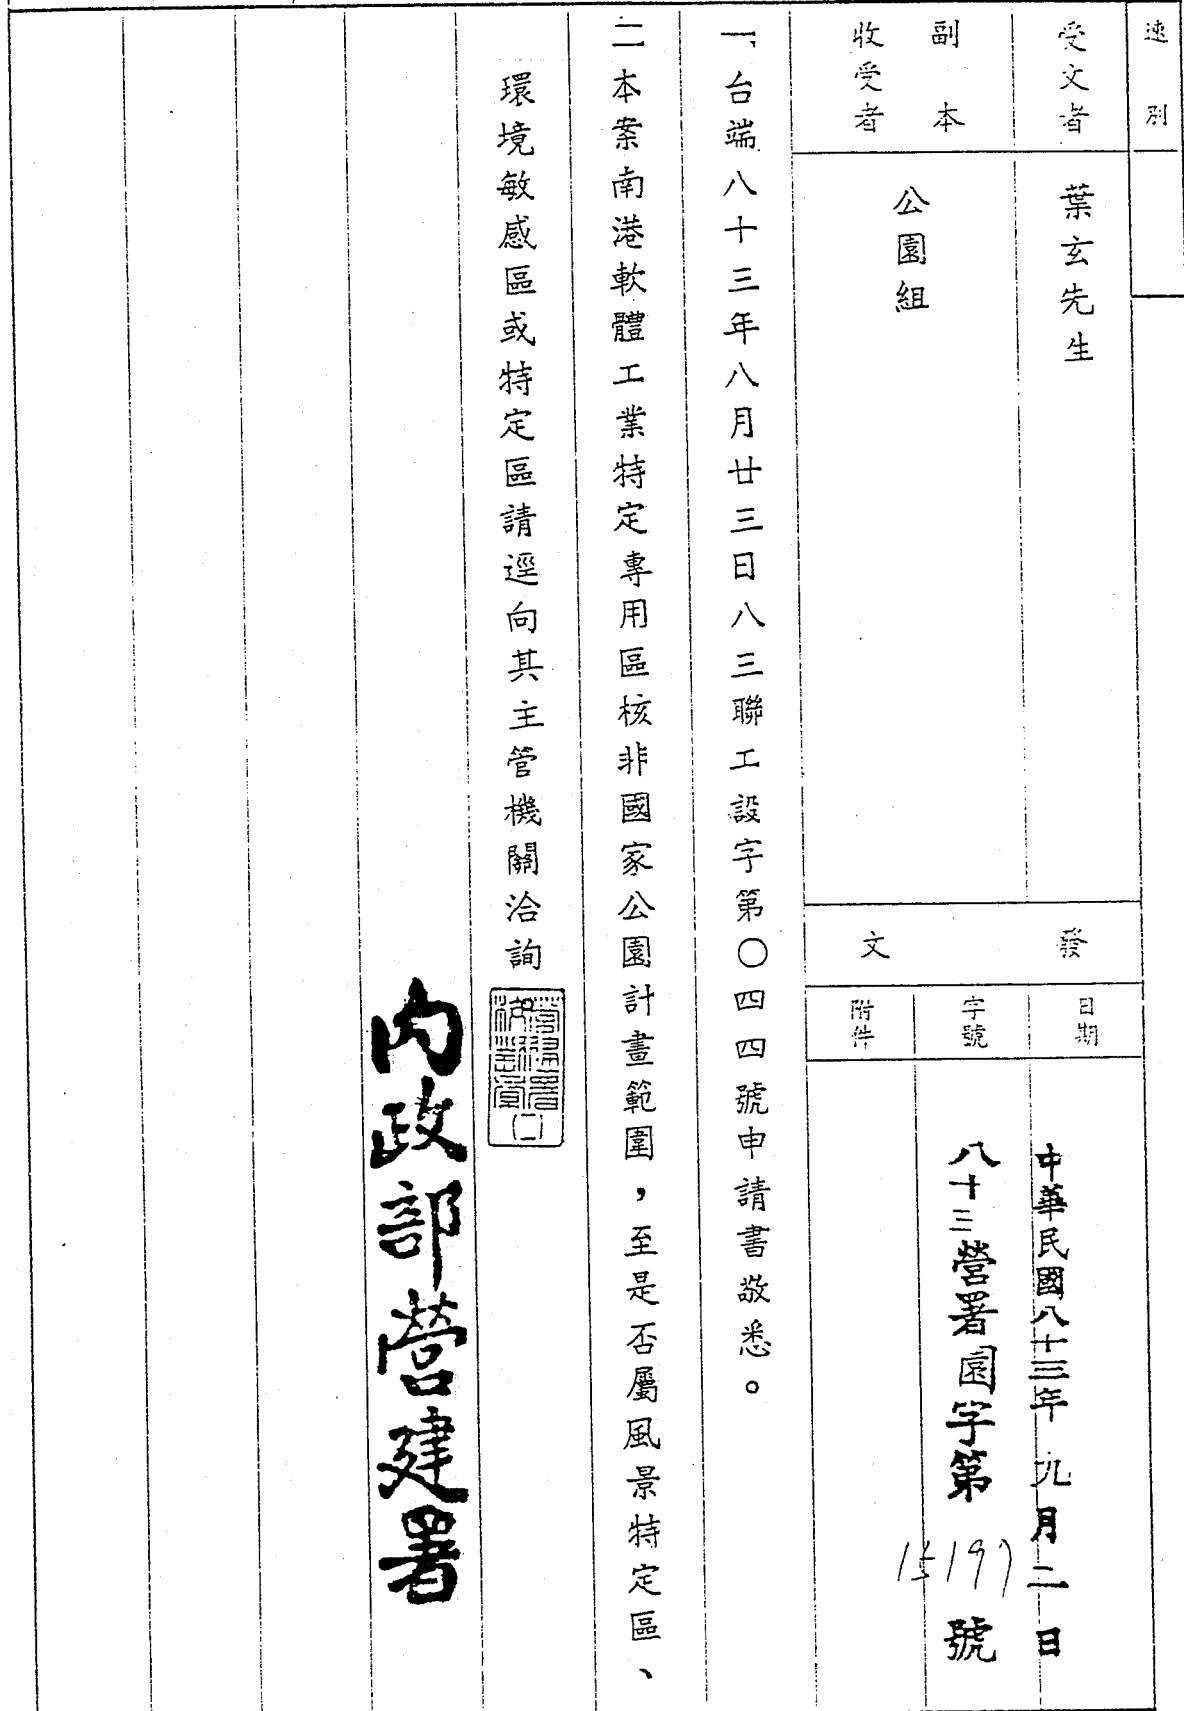 速別
受文者
葉玄先生
副本
收受者
公園組
發文
日期
中華民國八十三年九月二日
字號
八十三營署園字第15197號
附件
一、台端八十三年八月廿三日八三聯工設字第〇四四號申請書敬悉。
二本案南港軟體工業特定專用區核非國家公園計畫範圍，至是否屬風景特定區、
環境敏感區或特定區請逕向其主管機關洽詢
內政部營建署